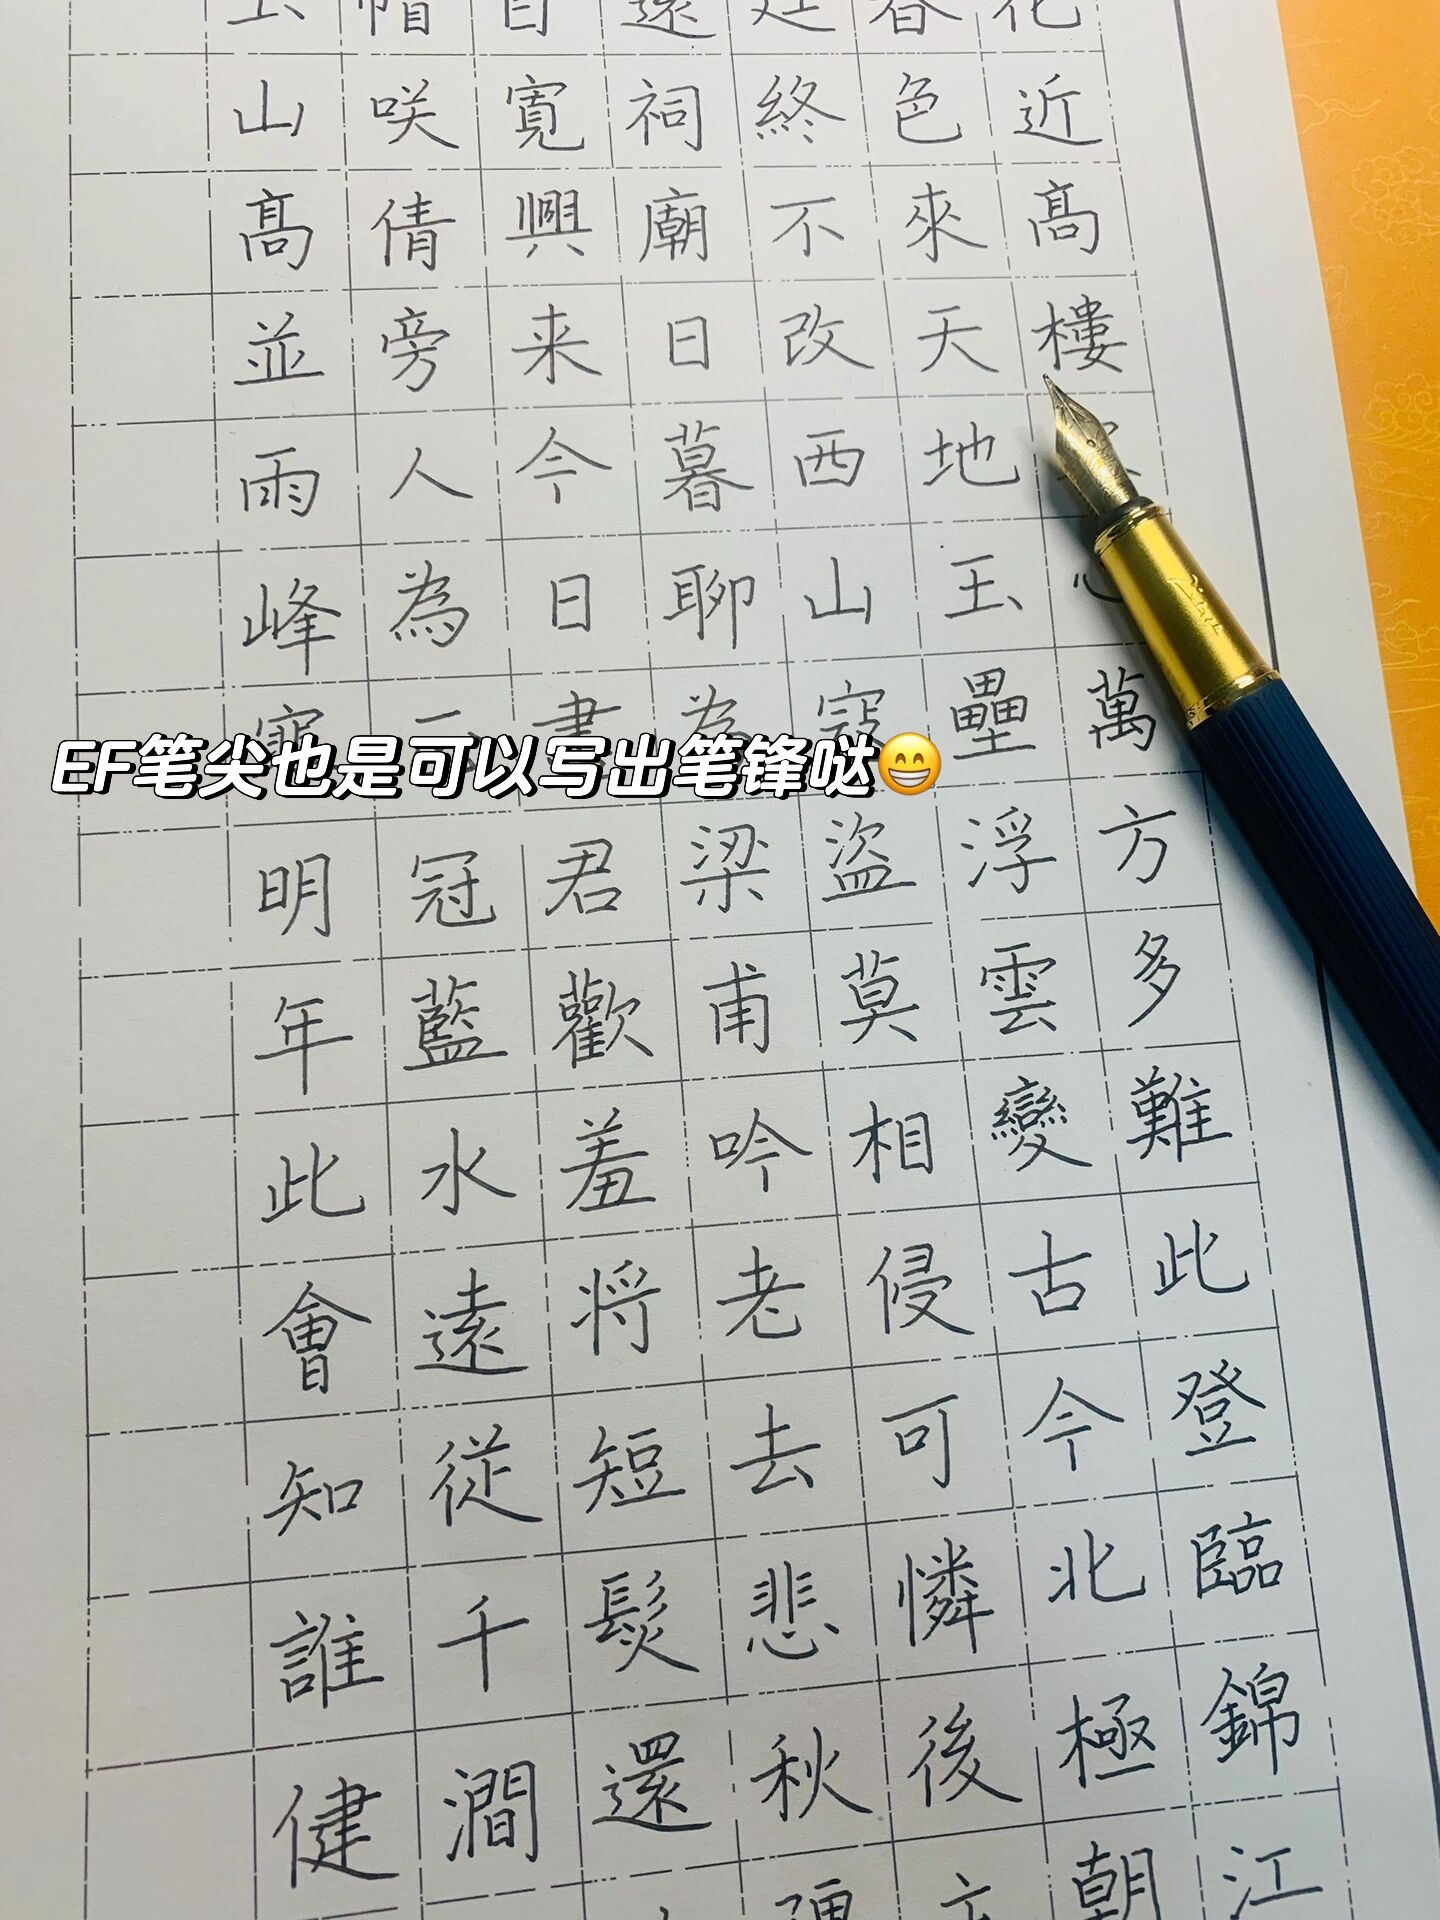 花近高樓心萬方多難此登臨錦江
春色來天地玉壘浮雲變古今北極朝
廷終不改西山寇盜莫相侵可憐後
還祠廟日暮聊為梁甫吟老去悲秋
自寬興来今日盡君歡羞将短髮還
帽咲倩旁人為正冠藍水遠從千澗
玉山高並兩峰寒明年此會知誰健
EF笔尖也是可以写出笔锋哒😁